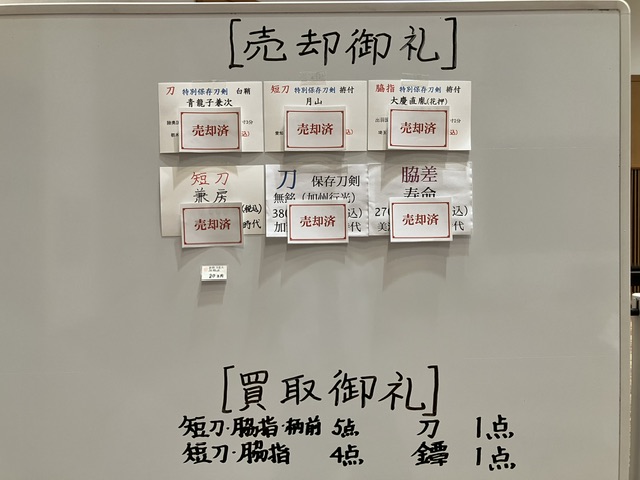 [売却御礼]
刀 特別保存刀剣 白鞘
青龍子兼次
売却済
短刀 特別保存刀剣 拵付
月山
売却済
脇指 特別保存刀剣 拵付
大慶直胤(花押)
売却済
短刀
兼房
(税込)
時代
売却済
刀 保存刀剣
無銘(加州行光)
380
込)
時代
売却済
脇差
寿命
270
込)
美濃
代
売却済
[買取御礼]
短刀・脇指・柄前 5点 刀 1点
短刀・脇指 4点 鐔 1点